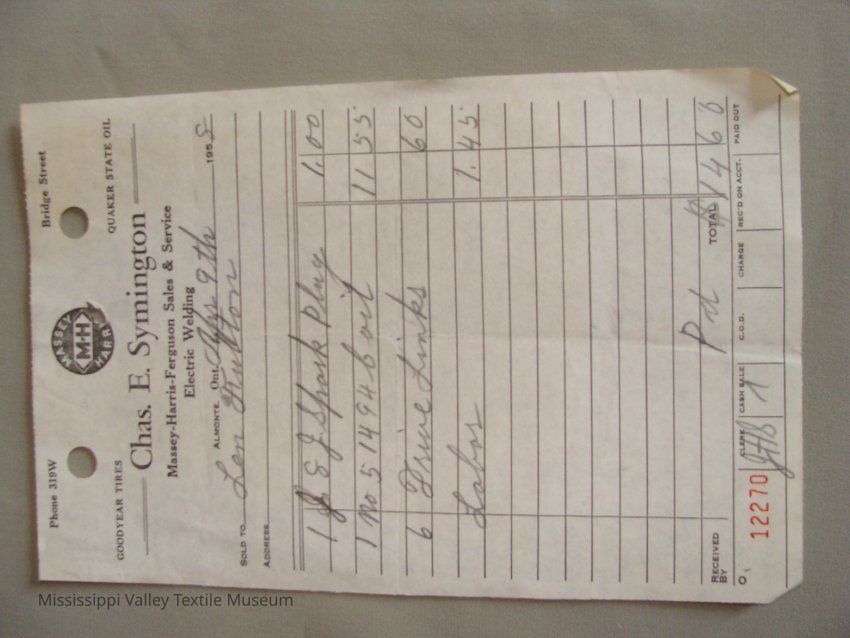 Phone 319W Bridge Street
MASSEY HARRIS
M-H
GOODYEAR TIRES QUAKER STATE OIL
Chas. E. Symington
Massey-Harris-Ferguson Sales & Service
Electric Welding
ALMONTE, Ont. 9th 1958
SOLD TO Len
ADDRESS
1 Spark Plug 1.00
1 No 5 1494 6 oil 11 55
6 Drive Links 60
Labor 1.45
Pd
RECEIVED BY TOTAL $14 60
CLERK CASH SALE C.O.D. CHARGE REC'D ON ACCT. PAID OUT
12270
Mississippi Valley Textile Museum